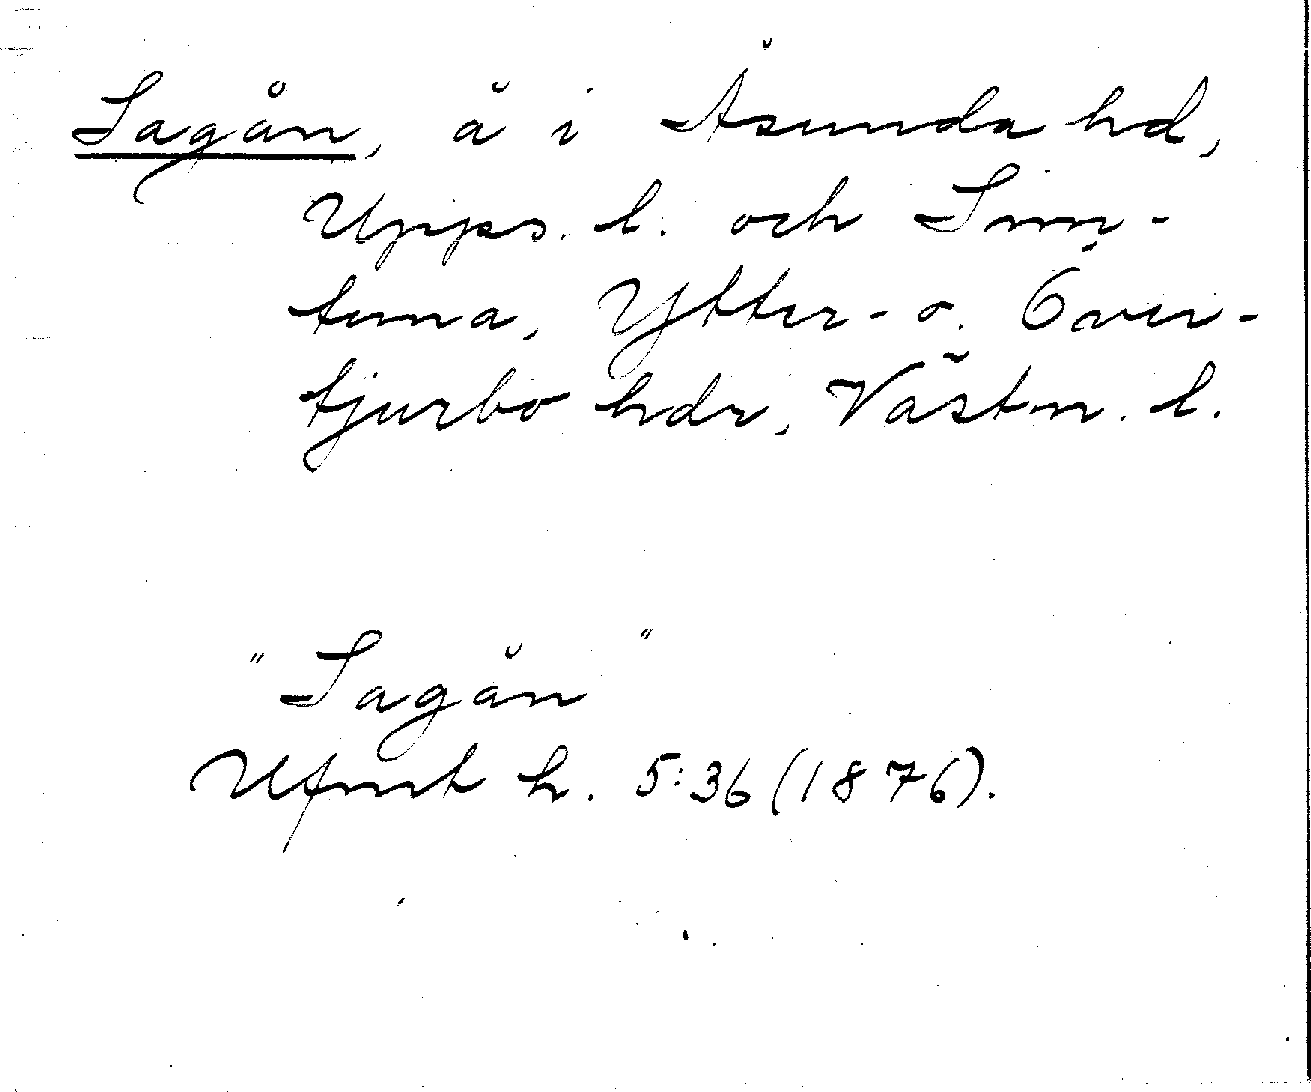 Sagån, å i Åsunda hd,
Upps. l. och Sim-
tuna, Ytter- o. Över-
tjurbo hdr, Västm. l.
"Sagån"
Ufmt h. 5:36 (1876).